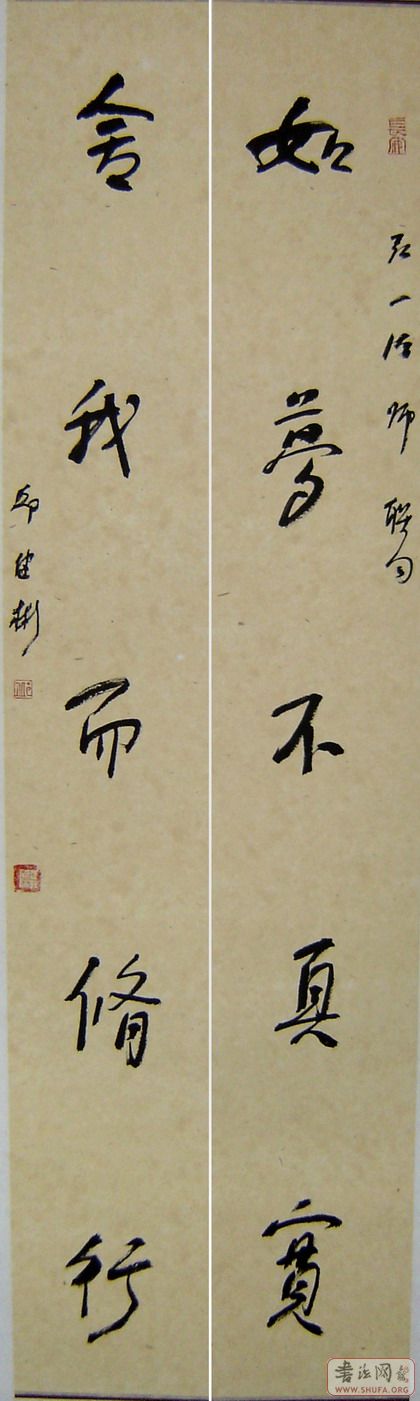 如夢不真實
弘一法師聯句
舍我而脩行
書法网
WWW.SHUFA.ORG